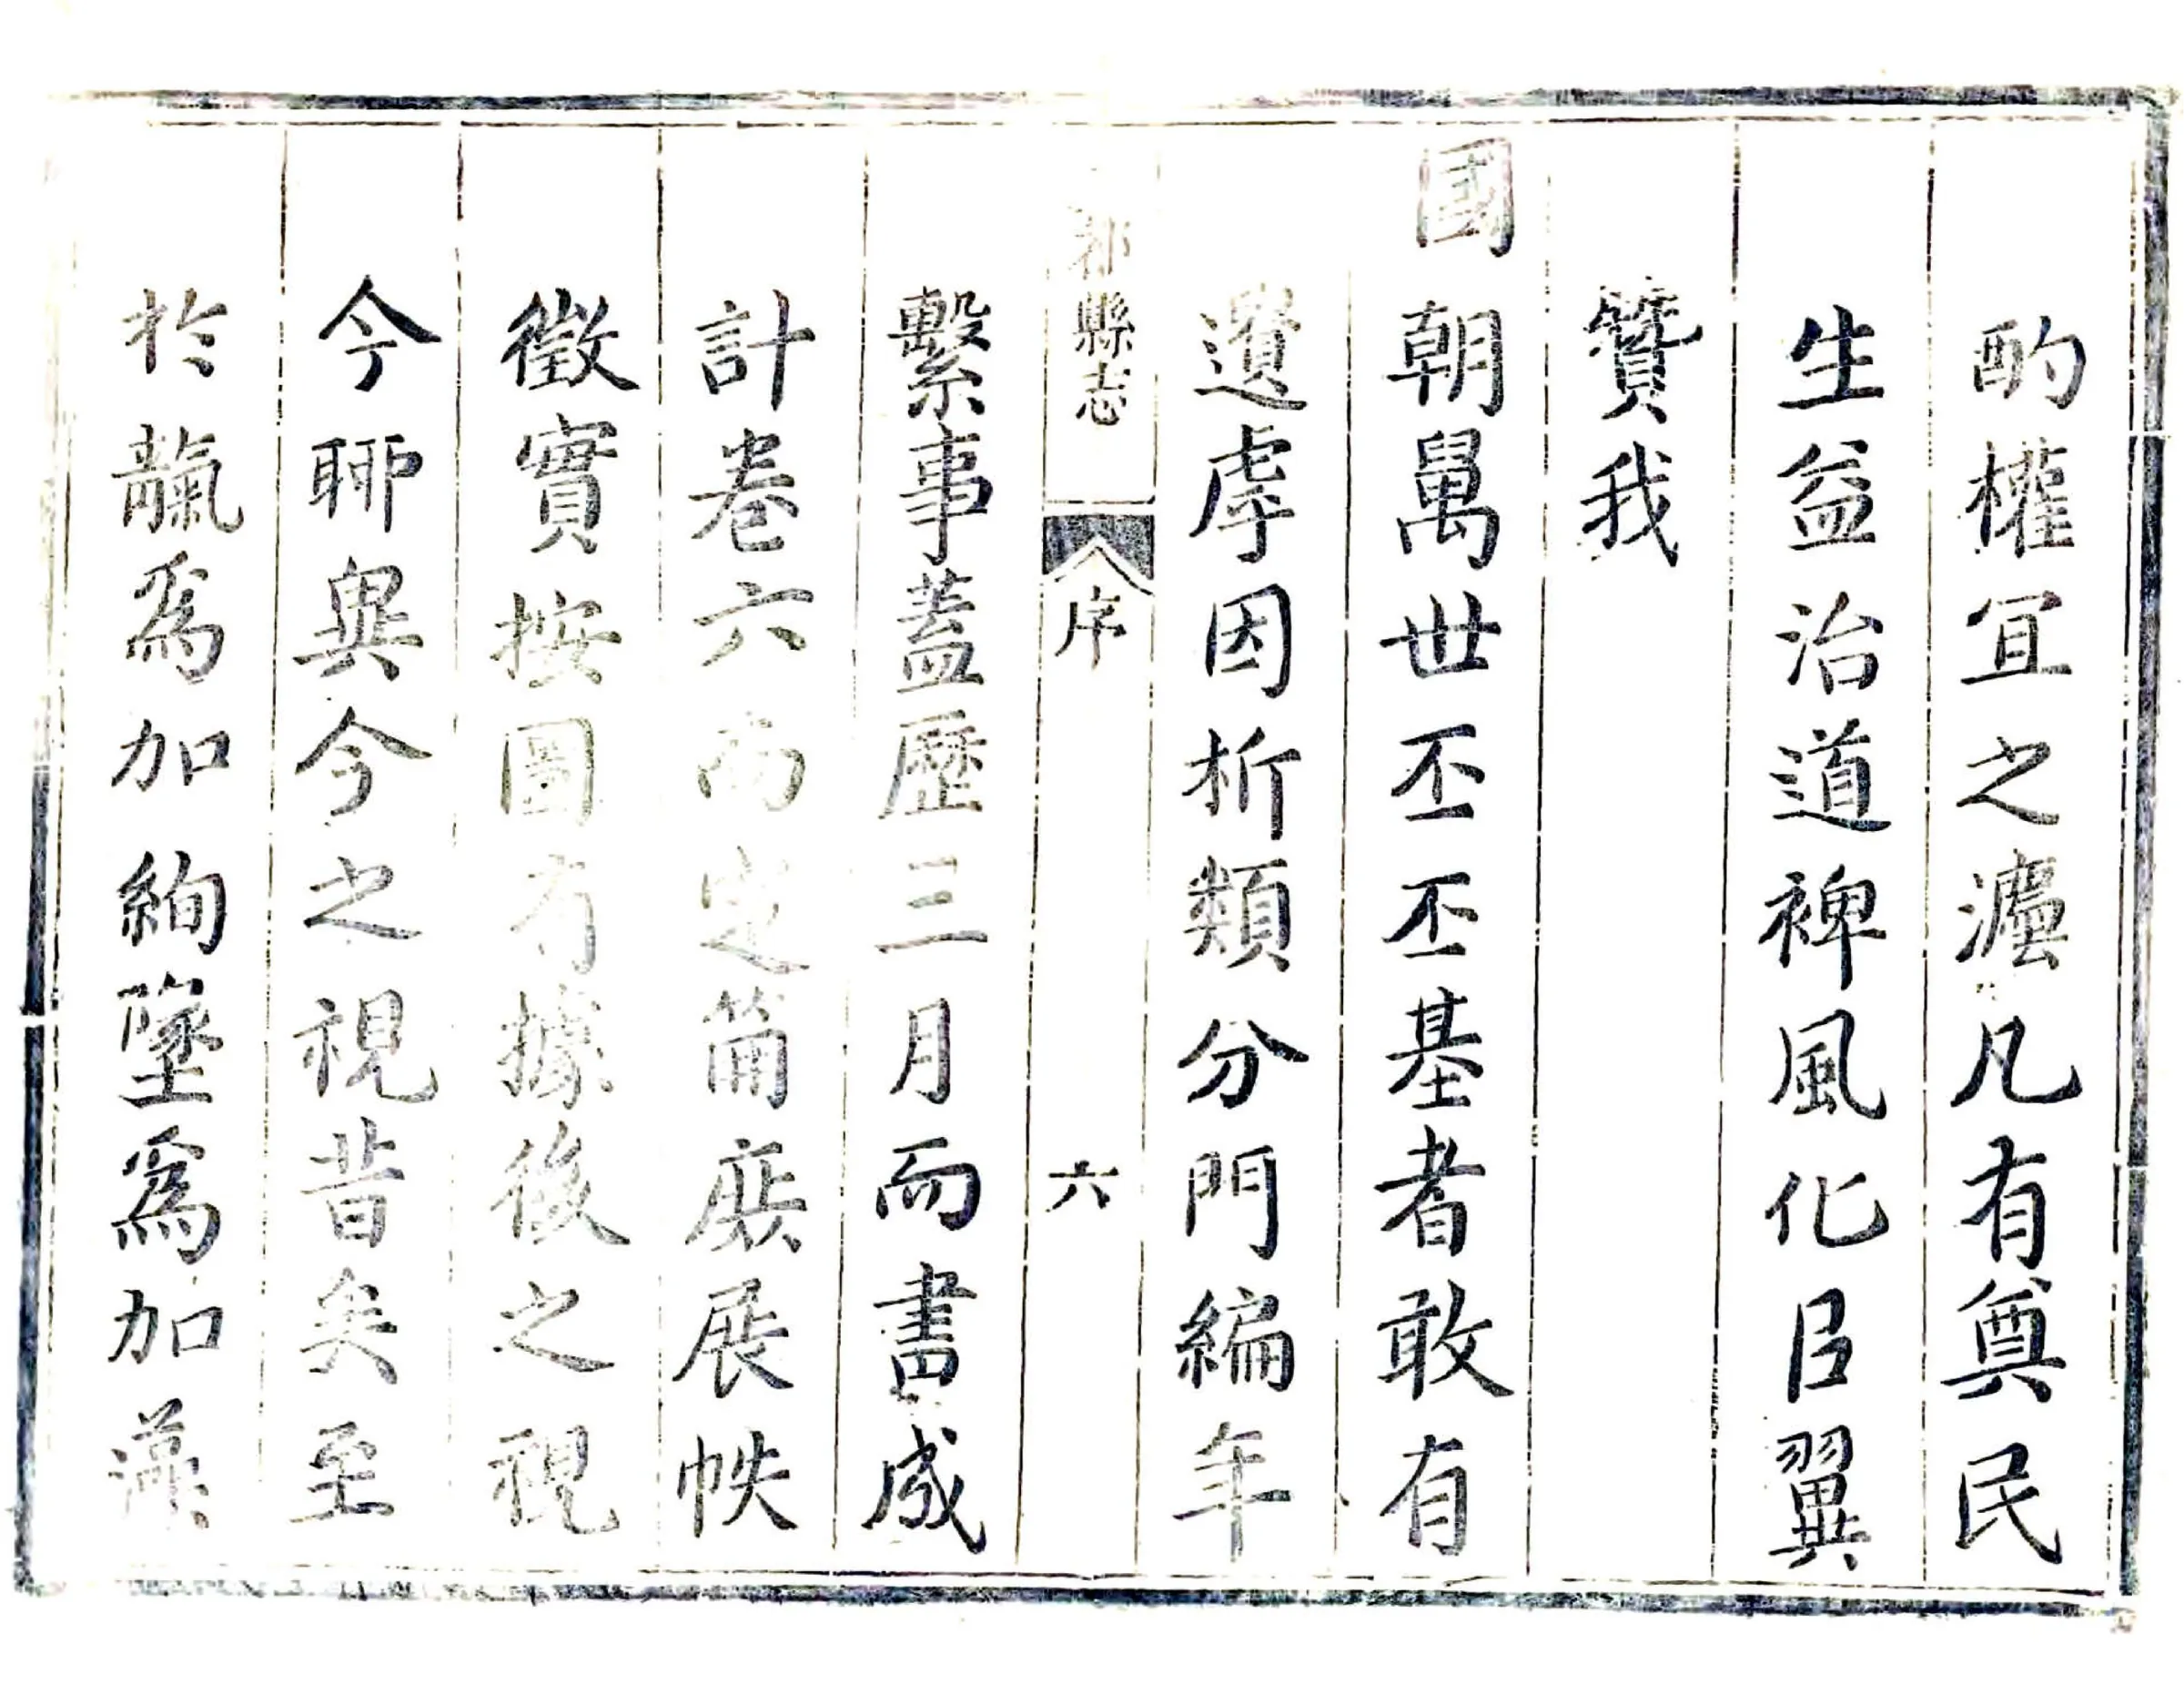 酌權宜之灋凡有奠民
生益治道裨風化㠯翼
贊我
國朝萬世丕丕基者敢有
遺虖因折類分門編年
祁縣志 序 六
繫事蓋歷三月而書成
計卷六而定篇展帙
徵實按圖有據後之視
今聊異今之視昔矣至
於靝爲加絢墬爲加